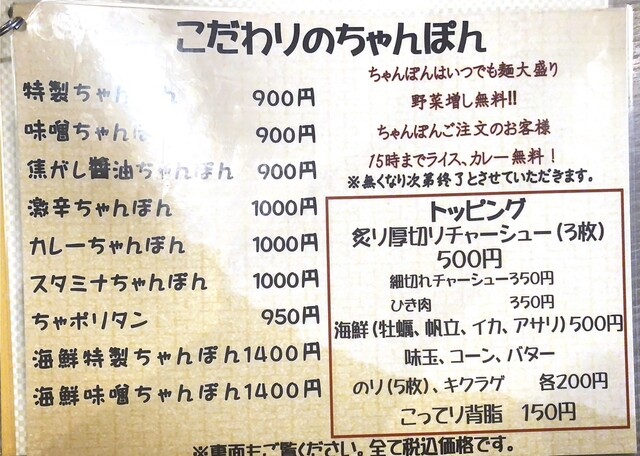 こだわりのちゃんぽん
特製ちゃんぽん 900円
味噌ちゃんぽん 900円
焦がし醬油ちゃんぽん 900円
激辛ちゃんぽん 1000円
カレーちゃんぽん 1000円
スタミナちゃんぽん 1000円
ちゃポリタン 950円
海鮮特製ちゃんぽん1400円
海鮮味噌ちゃんぽん1400円
ちゃんぽんはいつでも麺大盛り
野菜増し無料!!
ちゃんぽんご注文のお客様
15時までライス、カレー無料！
※無くなり次第終了とさせていただきます。
トッピング
炙り厚切りチャーシュー(3枚)
500円
細切れチャーシュー350円
ひき肉 350円
海鮮(牡蠣、帆立、イカ、アサリ)500円
味玉、コーン、バター
のり(5枚)、キクラゲ 各200円
こってり背脂 150円
※裏面もご覧ください。全て税込価格です。